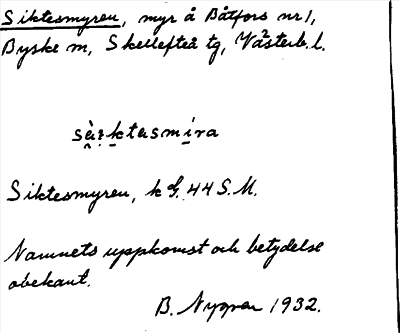 Siktesmyren, myr å Båtfors nr 1,
Byske sn, Skellefteå tg, Västerb. l.
sè̯ɪktəsmi̯ra
Siktesmyren, k G. 44 S.M.
Namnets uppkomst och betydelse
obekant.
B. Nygren 1932.